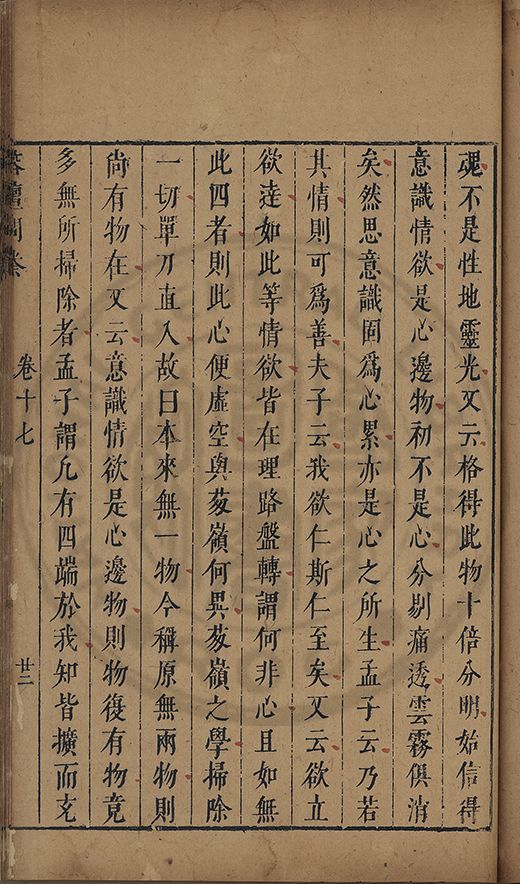 魂不是性地靈光又云格得此物十倍分明始信得
意識情欲是心邊物初不是心分剔痛透雲霧俱消
矣然思意識固爲心累亦是心之所生孟子云乃若
其情則可爲善夫子云我欲仁斯仁至矣又云欲立
欲達如此等情欲皆在理路盤轉謂何非心且如無
此四者則此心便虛空與葱嶺何異葱嶺之學掃除
一切單刀直入故曰本來無一物今稱原無兩物則
尚有物在又云意識情欲是心邊物則物復有物竟
多無所掃除者孟子謂凢有四端於我知皆擴而充
卷十七
廿二